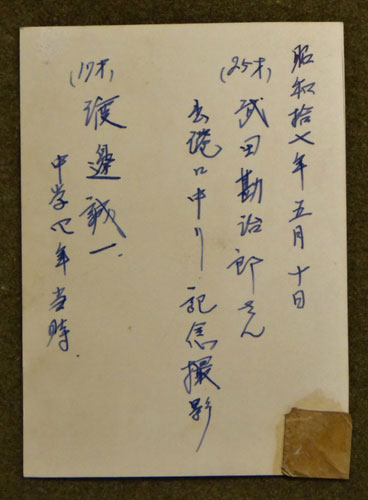 昭和拾七年五月十日
(25才)武田勘治郎さん
記念撮影
(17才)渡邊誠一.
中学四年当時.